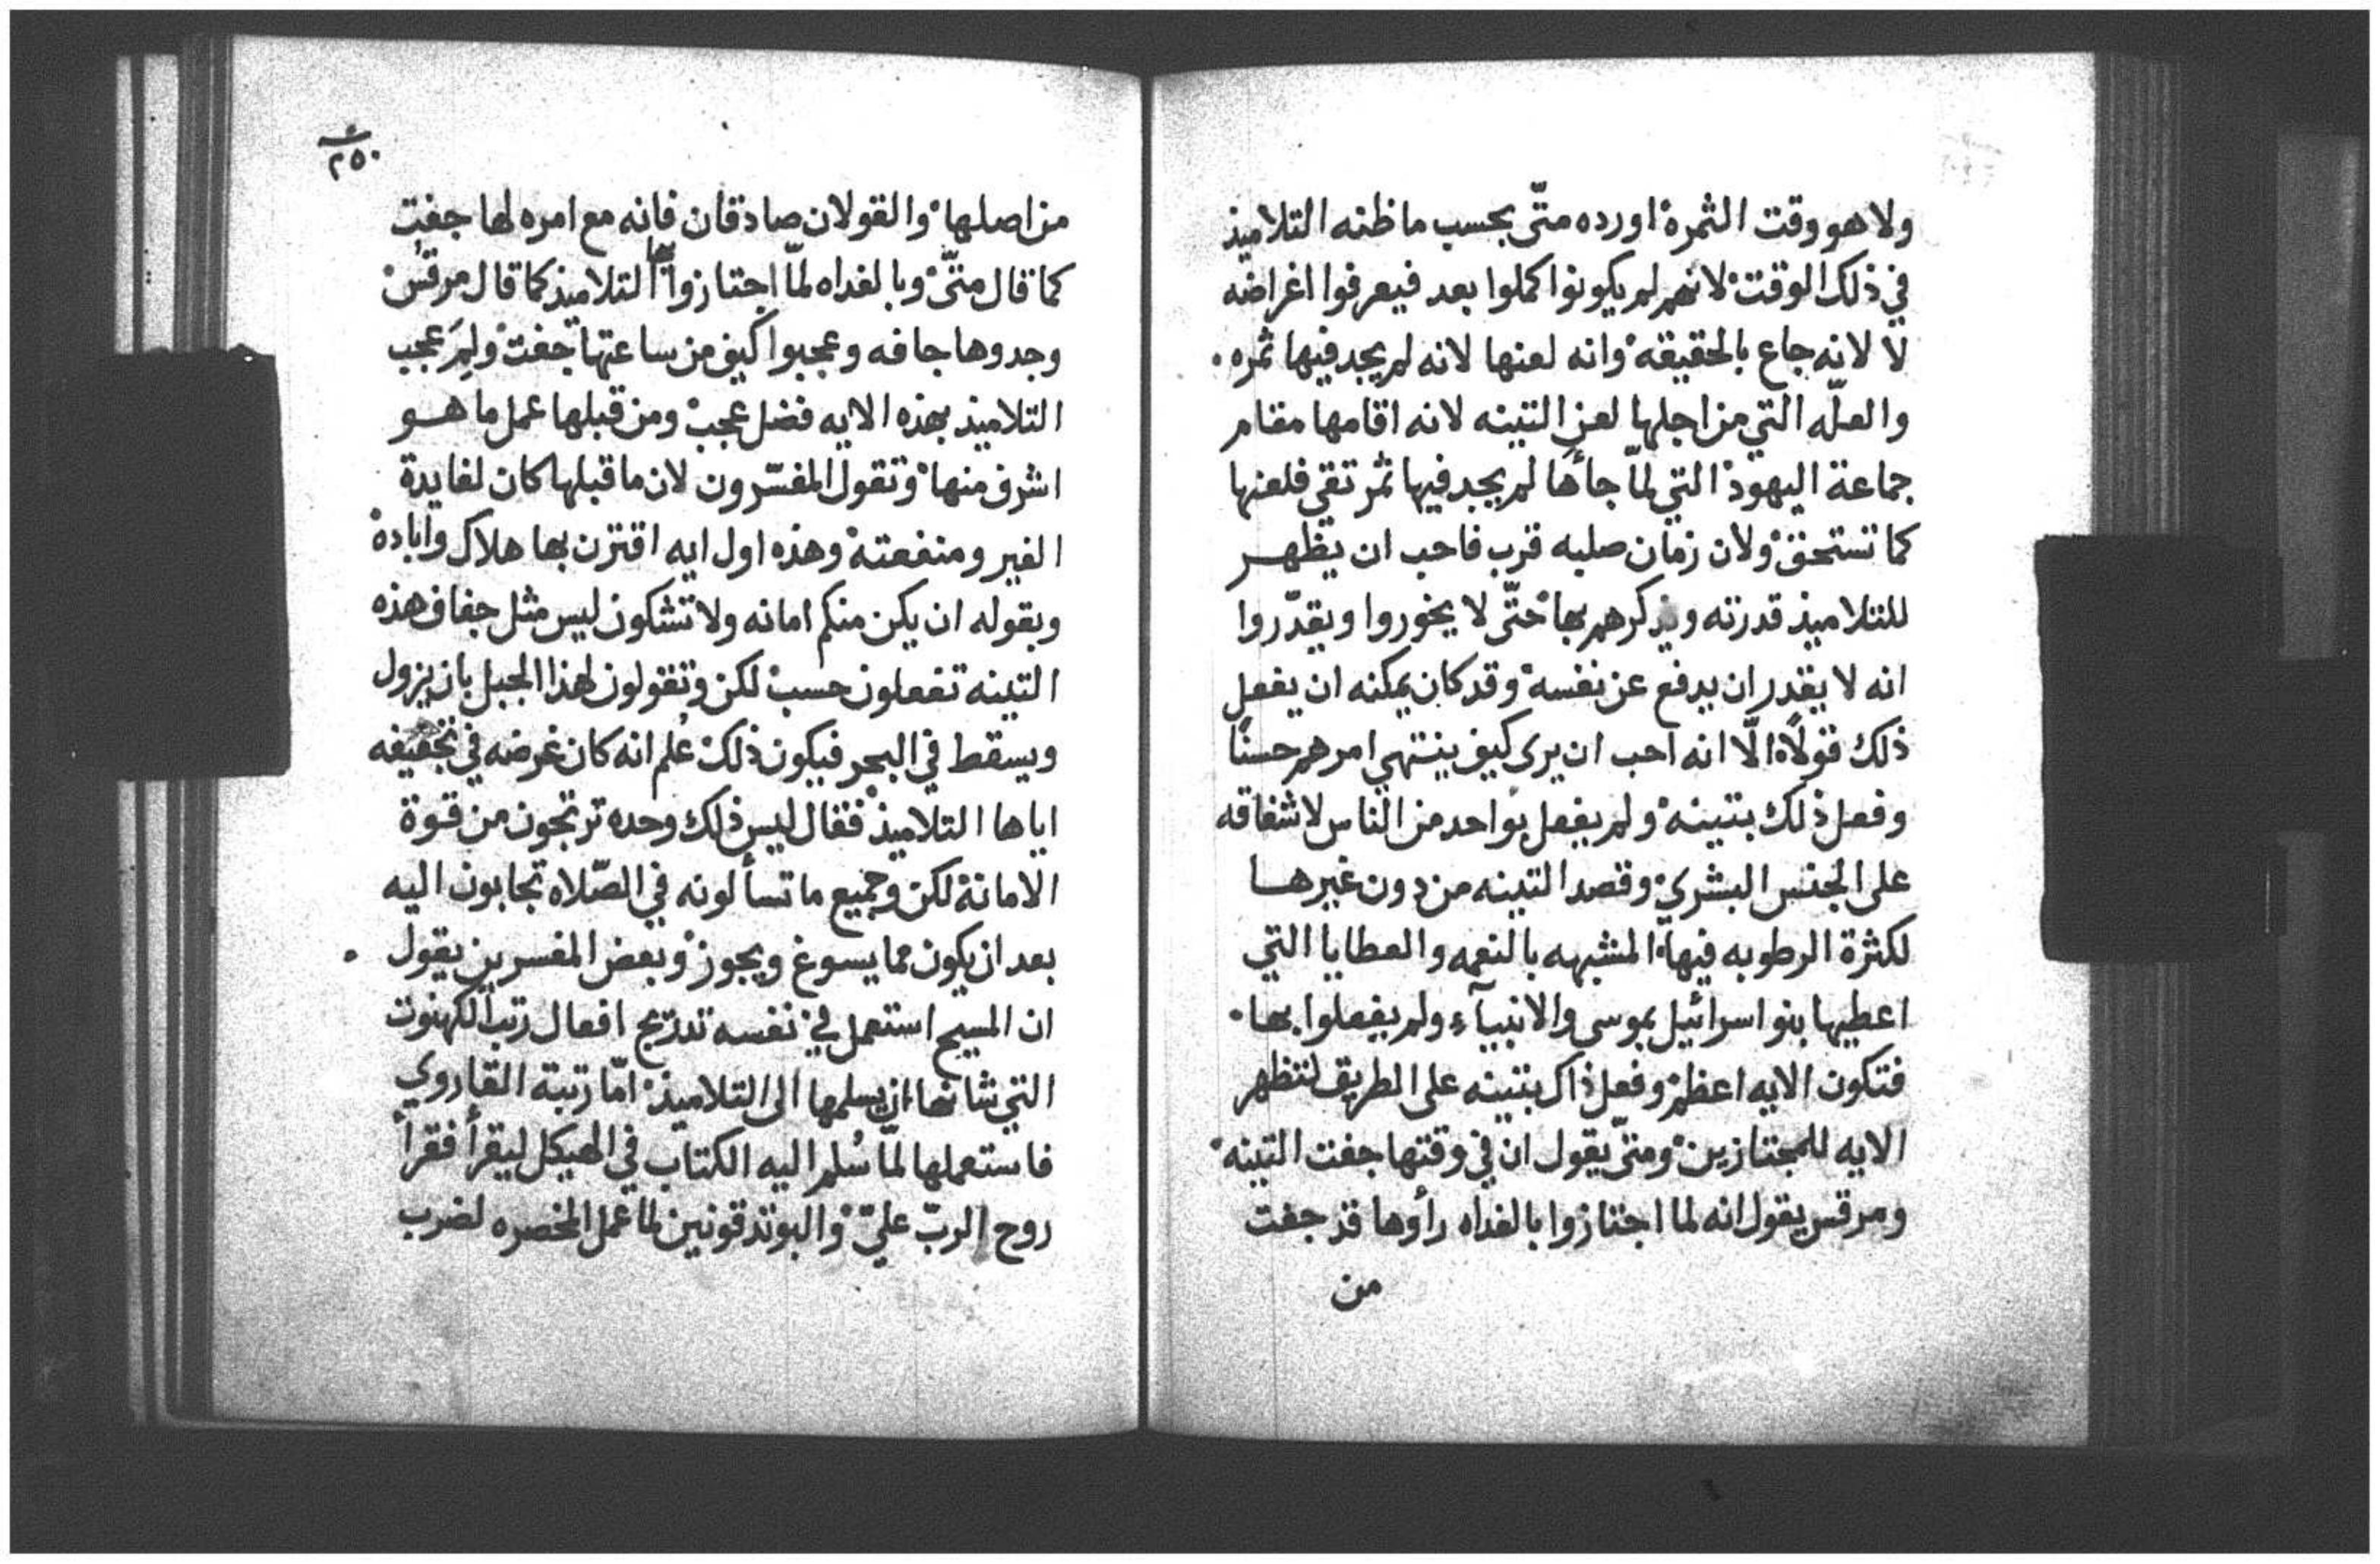 ولا هو وقت الثمرة اورده متّى بحسب ما ظنه التلاميذ
في ذلك الوقت لانهم لم يكونوا كملوا بعد فيعرفوا اغراضه
لا لانه جاع بالحقيقه وانه لعنها لانه لم يجد فيها ثمره.
والعلّه التي من اجلها لعن التينه لانه اقامها مقام
جماعة اليهود التي لمّا جأها لم يجد فيها ثمر تقى فلعنها
كما تستحق ولان زمان صلبه قرب فاحب ان يظهر
للتلاميذ قدرته ويذكرهم بها حتّى لا يخوروا ويقدّروا
انه لا يقدر ان يدفع عن نفسه وقد كان يمكنه ان يفعل
ذلك قولًا الّا انه احب ان يرى كيف ينتهي امرهم حسنًا
وفعل ذلك بتينه ولم يفعل بواحد من الناس لاشفاقه
على الجنس البشري وقصد التينه من دون غيرها
لكثرة الرطوبه فيها المشبهه بالنعمه والعطايا التي
اعطيها بنو اسرائيل بموسى والانبيآء ولم يفعلوا بها.
فتكون الايه اعظم وفعل ذاك بتينه على الطريق لتظهر
الايه للمجتازين ومتّى يقول ان في وقتها جفت التينه
ومرقس يقول انه لما اجتازوا بالغداه رأوها قد جفت
من
٢٥٠
من اصلها والقولان صادقان فانه مع امره لها جفت
كما قال متّى وبالغداه لمّا اجتازوا بها التلاميذ كما قال مرقس
وجدوها جافه وعجبوا كيف من ساعتها جفت ولِمَ عجب
التلاميذ بهذه الايه فضل عجب ومن قبلها عمل ما هو
اشرف منها وتقول المفسّرون لان ما قبلها كان لفايدة
الغير ومنفعته وهذه اول ايه اقترن بها هلاك وابادة
وبقوله ان يكن منكم امانه ولا تشكون ليس مثل جفاف هذه
التينه تفعلون حسب لكن وتقولون لهذا الجبل بان يزول
ويسقط في البحر فيكون ذلك عُلم انه كان غرضه في تجفيفه
اياها التلاميذ فقال ليس ذلك وحده ترتجون من قوة
الامانة لكن وجميع ما تسألونه في الصّلاه تجابون اليه
بعد ان يكون مما يسوغ ويجوز وبعض المفسرين يقول.
ان المسيح استعمل في نفسه تدريج افعال رتب الكهنوت
التي شانها ان يسلمها الى التلاميذ امّا رتبة القاروي
فاستعملها لمّا سُلم اليه الكتاب في الهيكل ليقرأ فقرأ
روح الربّ عليّ والبوتدقونين لما عمل المخصره لضرب